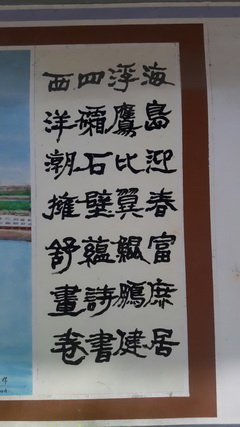 海島迎春富庶居
浮鷹比翼鯤鵬健
四礵石壁蘊詩書
西洋潮擁舒畫卷
作